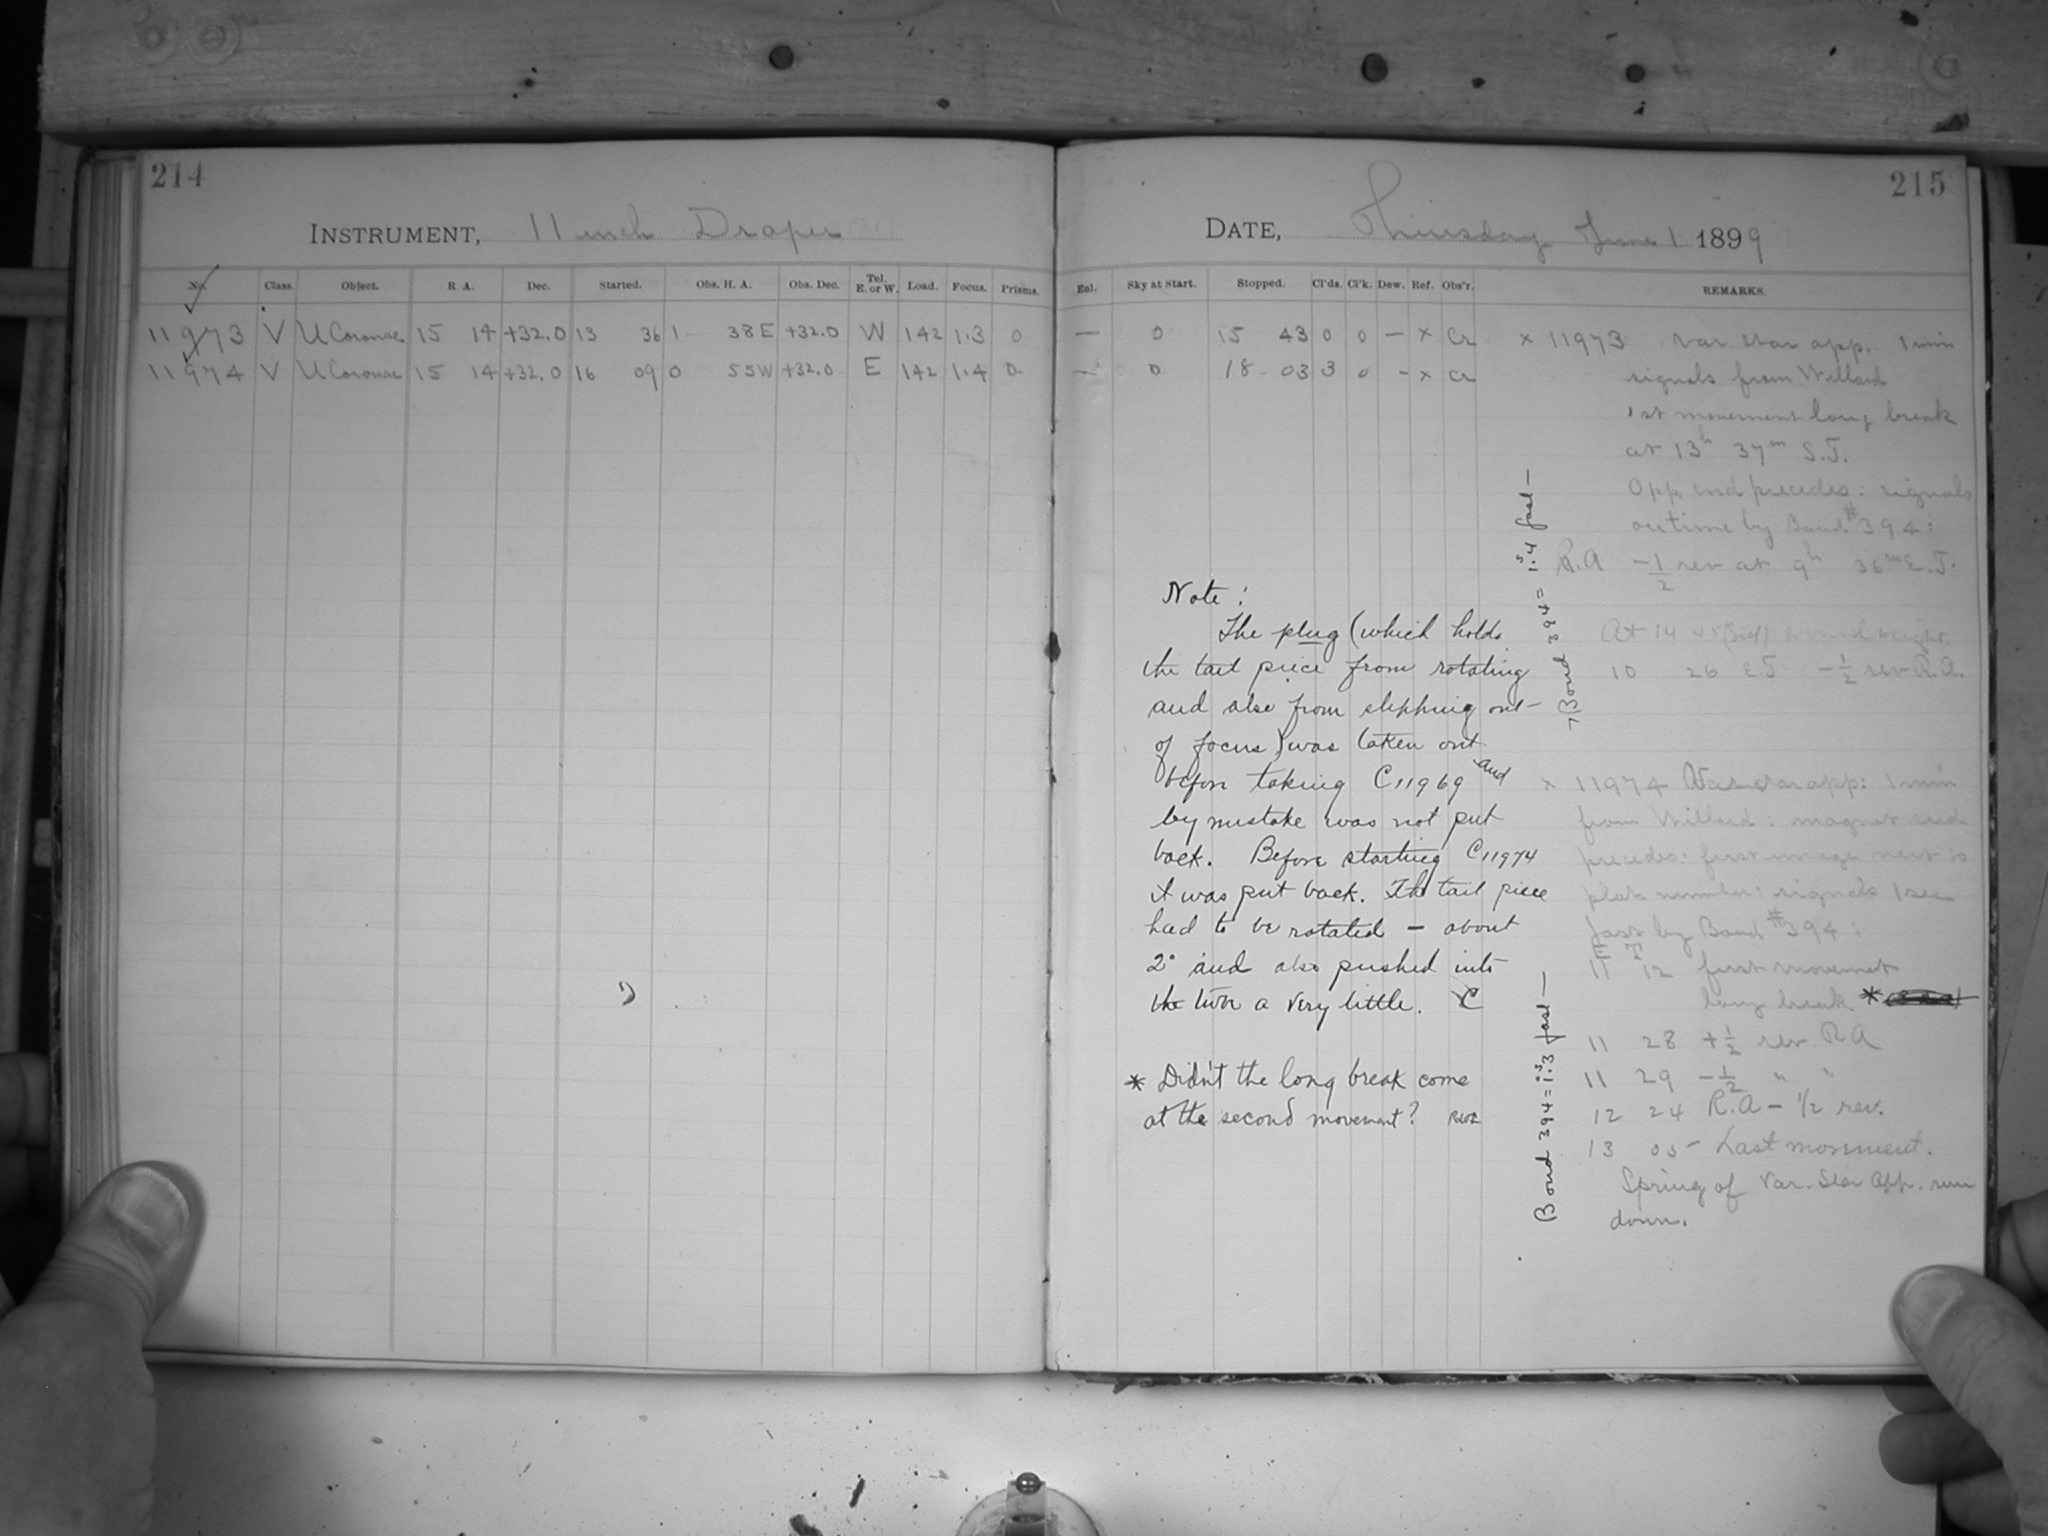 214
INSTRUMENT, 11 inch Draper
No. Class. Object. R. A. Dec. Started. Obs. H. A. Obs. Dec. Tel. E. or W. Load. Focus. Prisms.
11973 V U Coronae 15 14 +32.0 13 36 1 38 E +32.0 W 142 1.3 0
11974 V U Coronae 15 14 +32.0 16 09 0 55 W +32.0 E 142 1.4 0
215
DATE, Thursday June 1 1899
Enl. Sky at Start. Stopped. Cl'ds. Cl'k. Dew. Ref. Obs'r. REMARKS.
— 0 15 43 0 0 — x Cr
— 0 18 03 3 0 - x Cr
x 11973 Var star app. 1 min
signals from Willard
1st movement long break
at 13h 37m S.T.
Opp. end precedes: signals
on time by Bond #394:
R.A -1/2 rev at 9h 36m E.T.
At 14 45 wound weight.
10 26 E.T -1/2 rev R.A.
Bond 394 = 1.s4 fast —
Note:
The plug (which holds
the tail piece from rotating
and also from slipping out
of focus) was taken out
before taking C11969 and
by mistake was not put
back. Before starting C11974
it was put back. The tail piece
had to be rotated — about
2° and also pushed into
the tube a very little. C
* Didn't the long break come
at the second movement?
x 11974 Var star app: 1 min
from Willard: magnet end
precedes: first image next to
plate number: signals 1 sec
fast by Bond #394:
E T
11 12 first movement
long break *
11 28 +1/2 rev. R A
11 29 -1/2 " "
12 24 R.A - 1/2 rev.
13 05 - Last movement.
Spring of Var. Star App. run
down.
Bond 394 = 1.s3 fast —